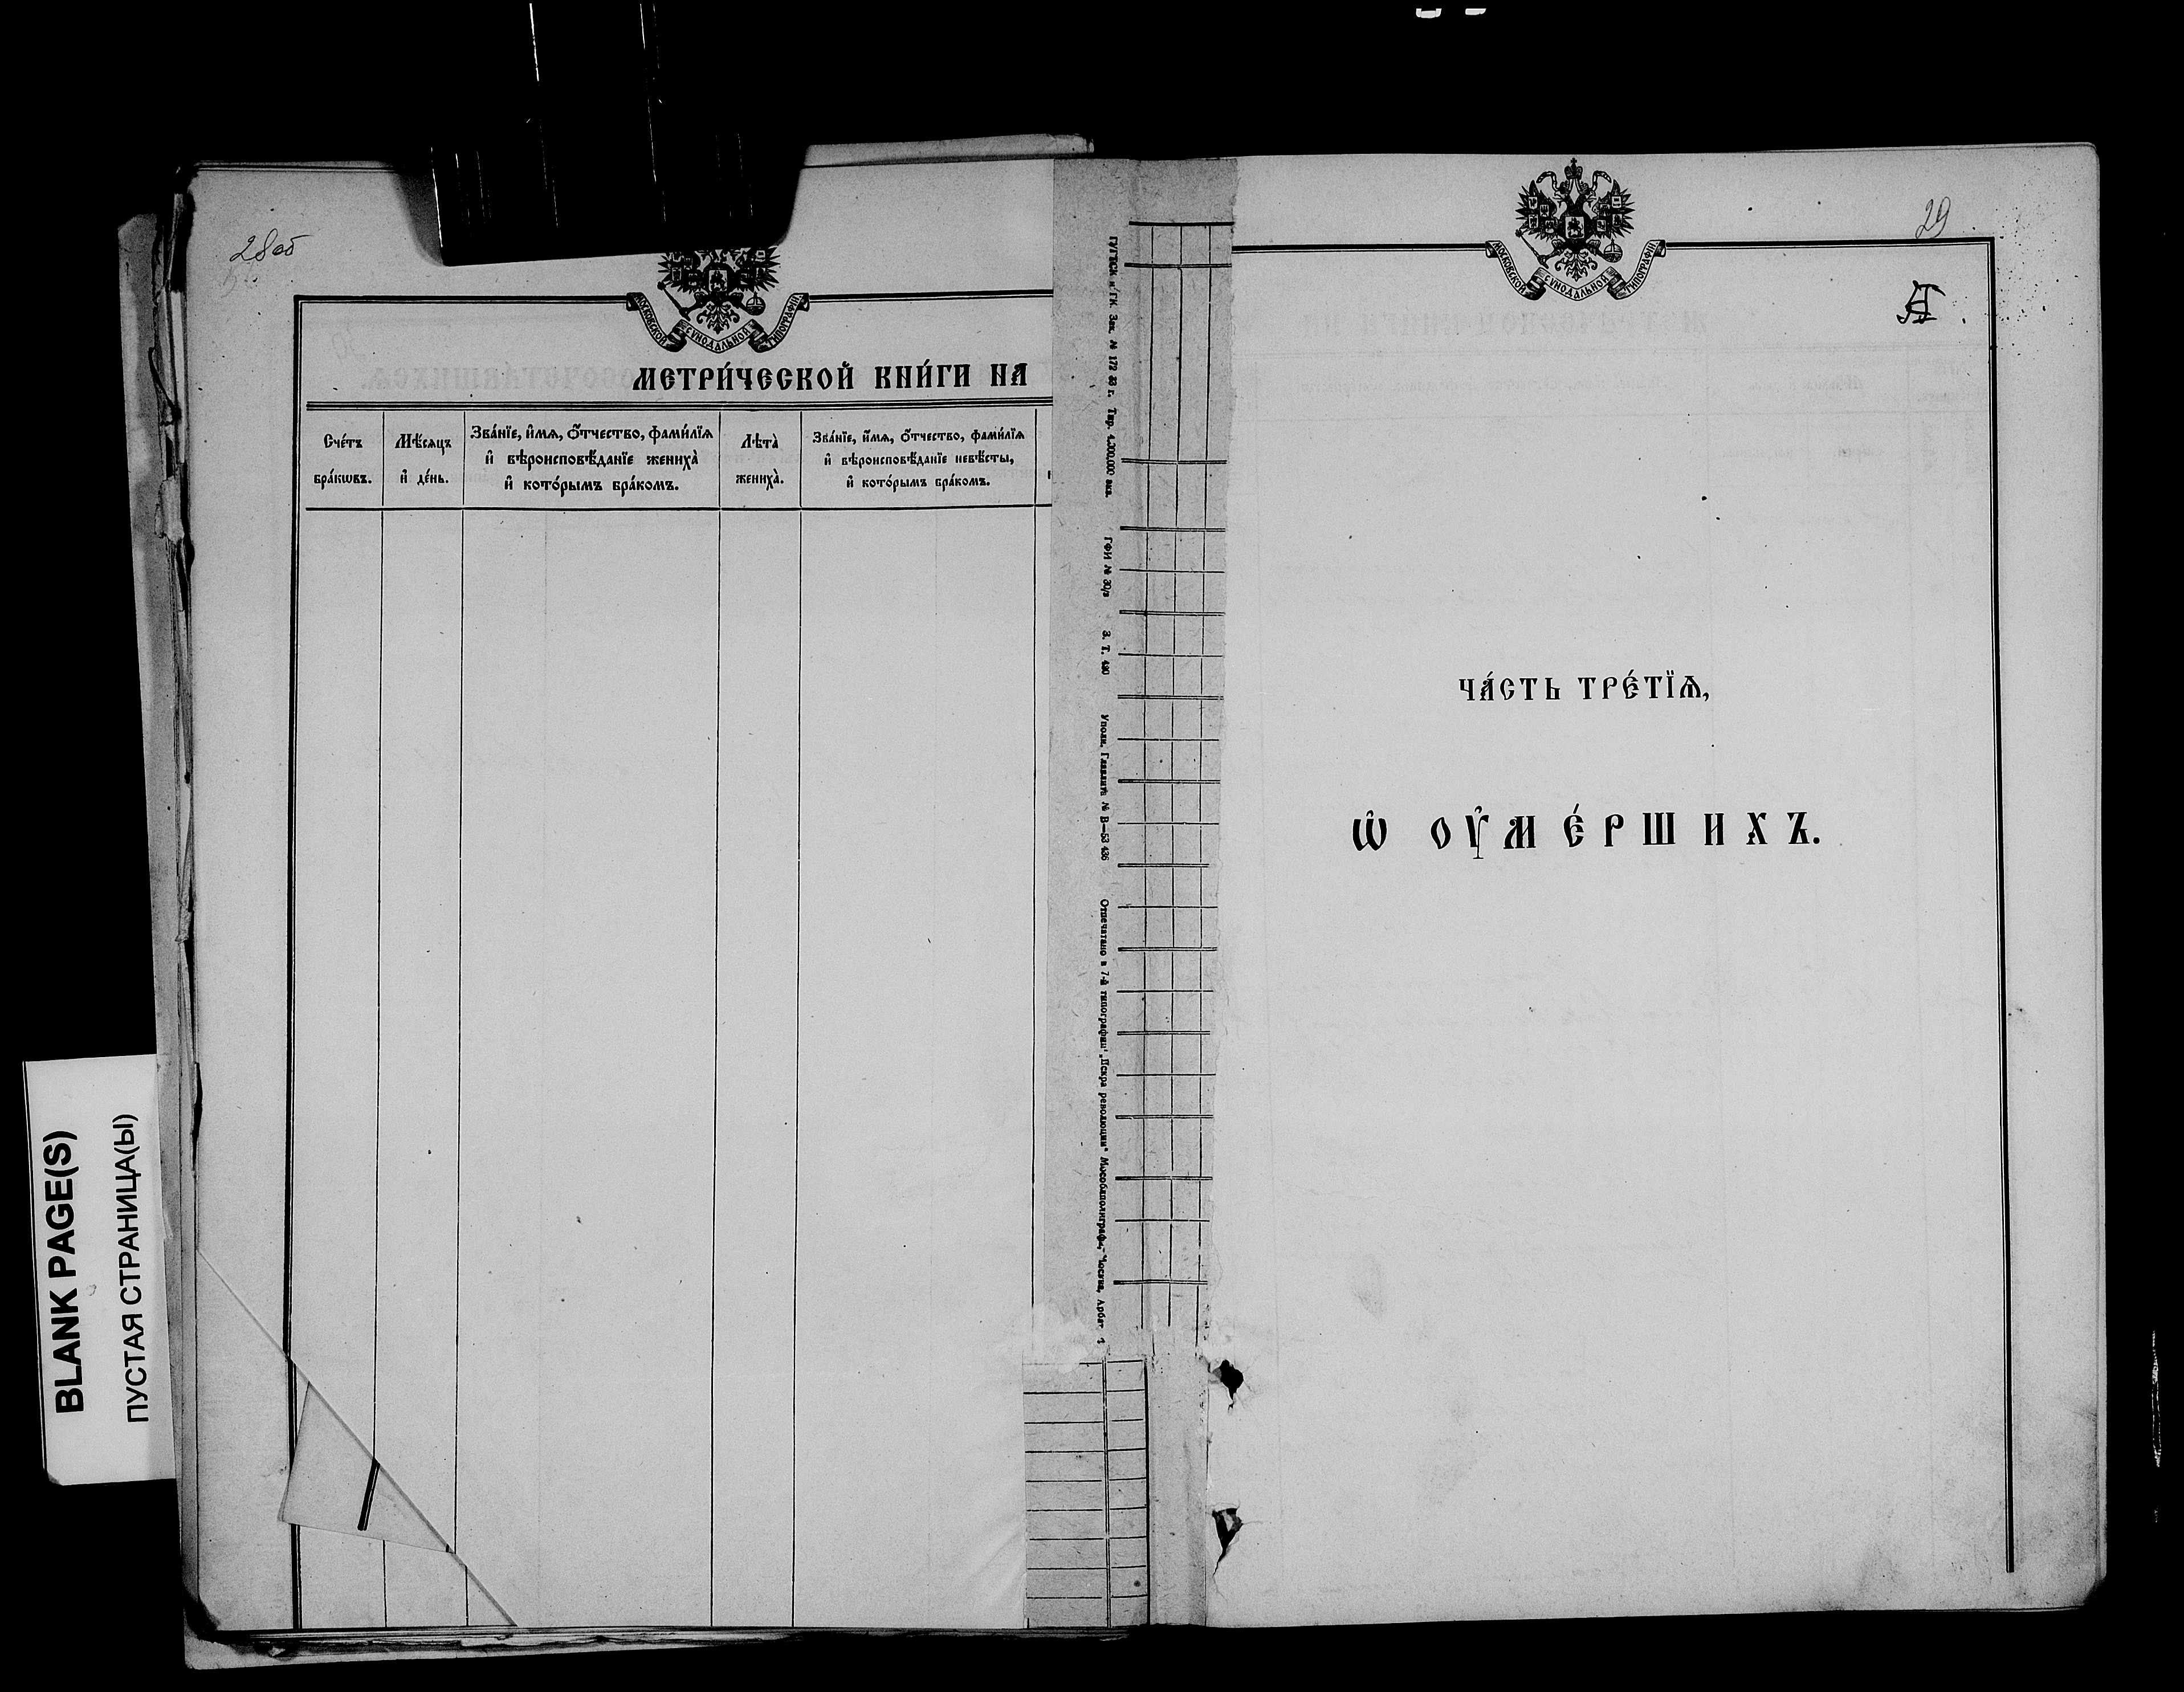 28об
МОСКОВСКОЙ СУНОДАЛЬНОЙ ТИПОГРАФІИ
МЕТРИ́ЧЕСКОЙ КНИ́ГИ НА
Сче́тъ бра́кѡвъ.
Мѣ́сяцъ и҆ де́нь.
Зва́нїе, и҆́мѧ, ѻ҆́тчество, фами́лїѧ
и҆ вѣроисповѣ́данїе жениха̀
и҆ кото́рымъ бра́комъ.
Лѣта̀ жениха̀.
Зва́нїе, и҆́мѧ, ѻ҆́тчество, фами́лїѧ
и҆ вѣроисповѣ́данїе невѣ́сты,
и҆ кото́рымъ бра́комъ.
Зак. № 172 33 г. Тир. 4.000.000 экз. ГФИ № 30/в З. Т. 480 Уполн. Главлита № В—53 436 Отпечатано в 7-й типографии „Искра революции“ Мособлполиграфа, Москва, Арбат,
МОСКОВСКОЙ СУНОДАЛЬНОЙ ТИПОГРАФІИ
29
ЧА́СТЬ ТРЕ́ТЇѦ,
Ѡ҆ ОУ҆МЕ́РШИХЪ.
BLANK PAGE(S)
ПУСТАЯ СТРАНИЦА(Ы)